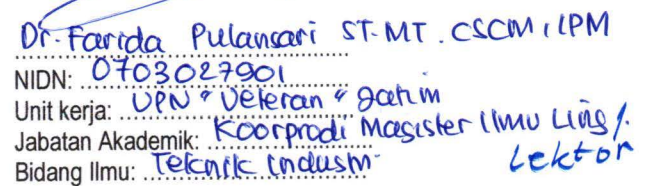 Dr. Farida Pulansari ST. MT. CSCM, IPM
NIDN: 0703027901
Unit kerja: UPN "Veteran" Jatim
Jabatan Akademik: Koorprodi Magister Ilmu Ling /.
Lektor
Bidang Ilmu: Teknik Industri